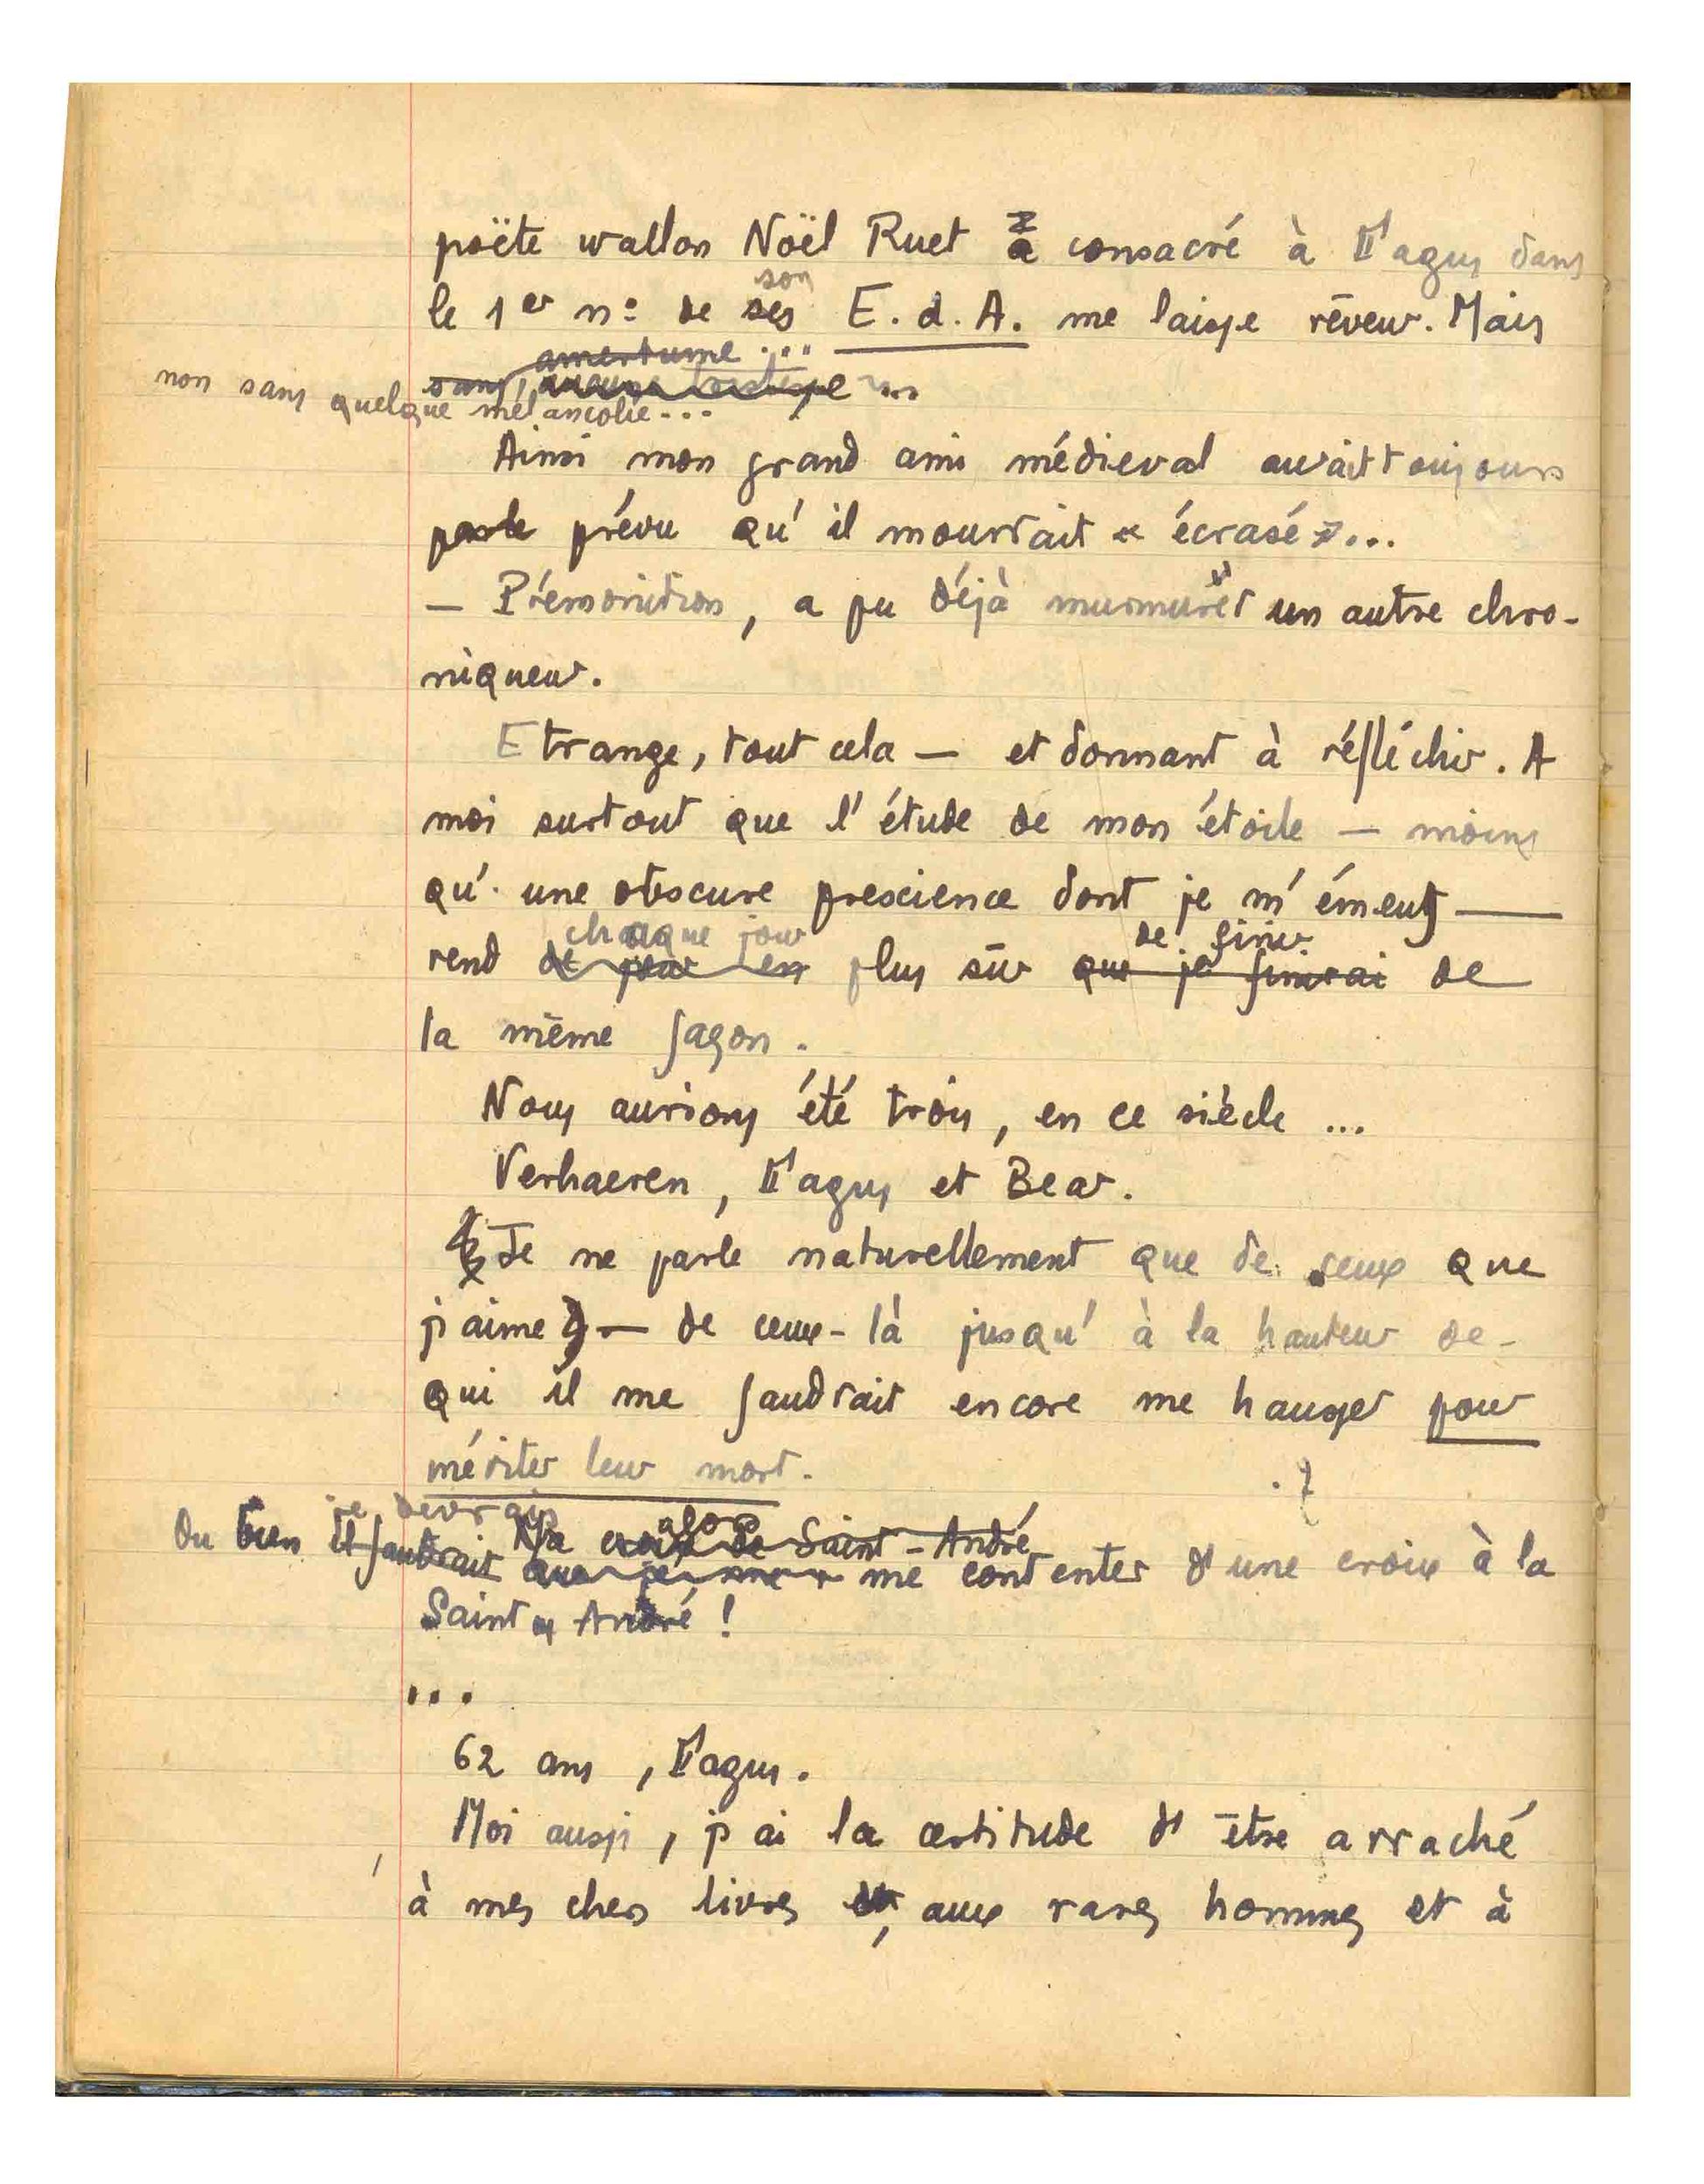 poëte wallon Noël Ruet a consacré à Fagus dans
son
le 1er nº de ses E. d. A. me laisse rêveur. Mais
amertume ...
sans aucune
non sans quelque mélancolie...
Ainsi mon grand ami médieval aurait toujours
parle prévu qu'il mourrait « écrasé »...
— Prémonition, a pu déjà murmurer un autre chro-
niqueur.
Etrange, tout cela — et donnant à réfléchir. A
moi surtout que l'étude de mon étoile — moins
qu'une obscure prescience dont je m'émeus —
chaque jour de finir
rend de jour en plus sûr que je finirai de
la même façon.
Nous aurions été trois, en ce siècle ...
Verhaeren, Fagus et Bear.
Je ne parle naturellement que de ceux que
j'aime — de ceux-là jusqu'à la hauteur de
qui il me faudrait encore me hausser pour
mériter leur mort.
je devrais alors
Ma croix de Saint-André
Ou bien il faudrait que je me me contenter d'une croix à la
Saint André !
...
62 ans, Fagus.
Moi aussi, j'ai la certitude d'être arraché
à mes chers livres et, aux rares hommes et à